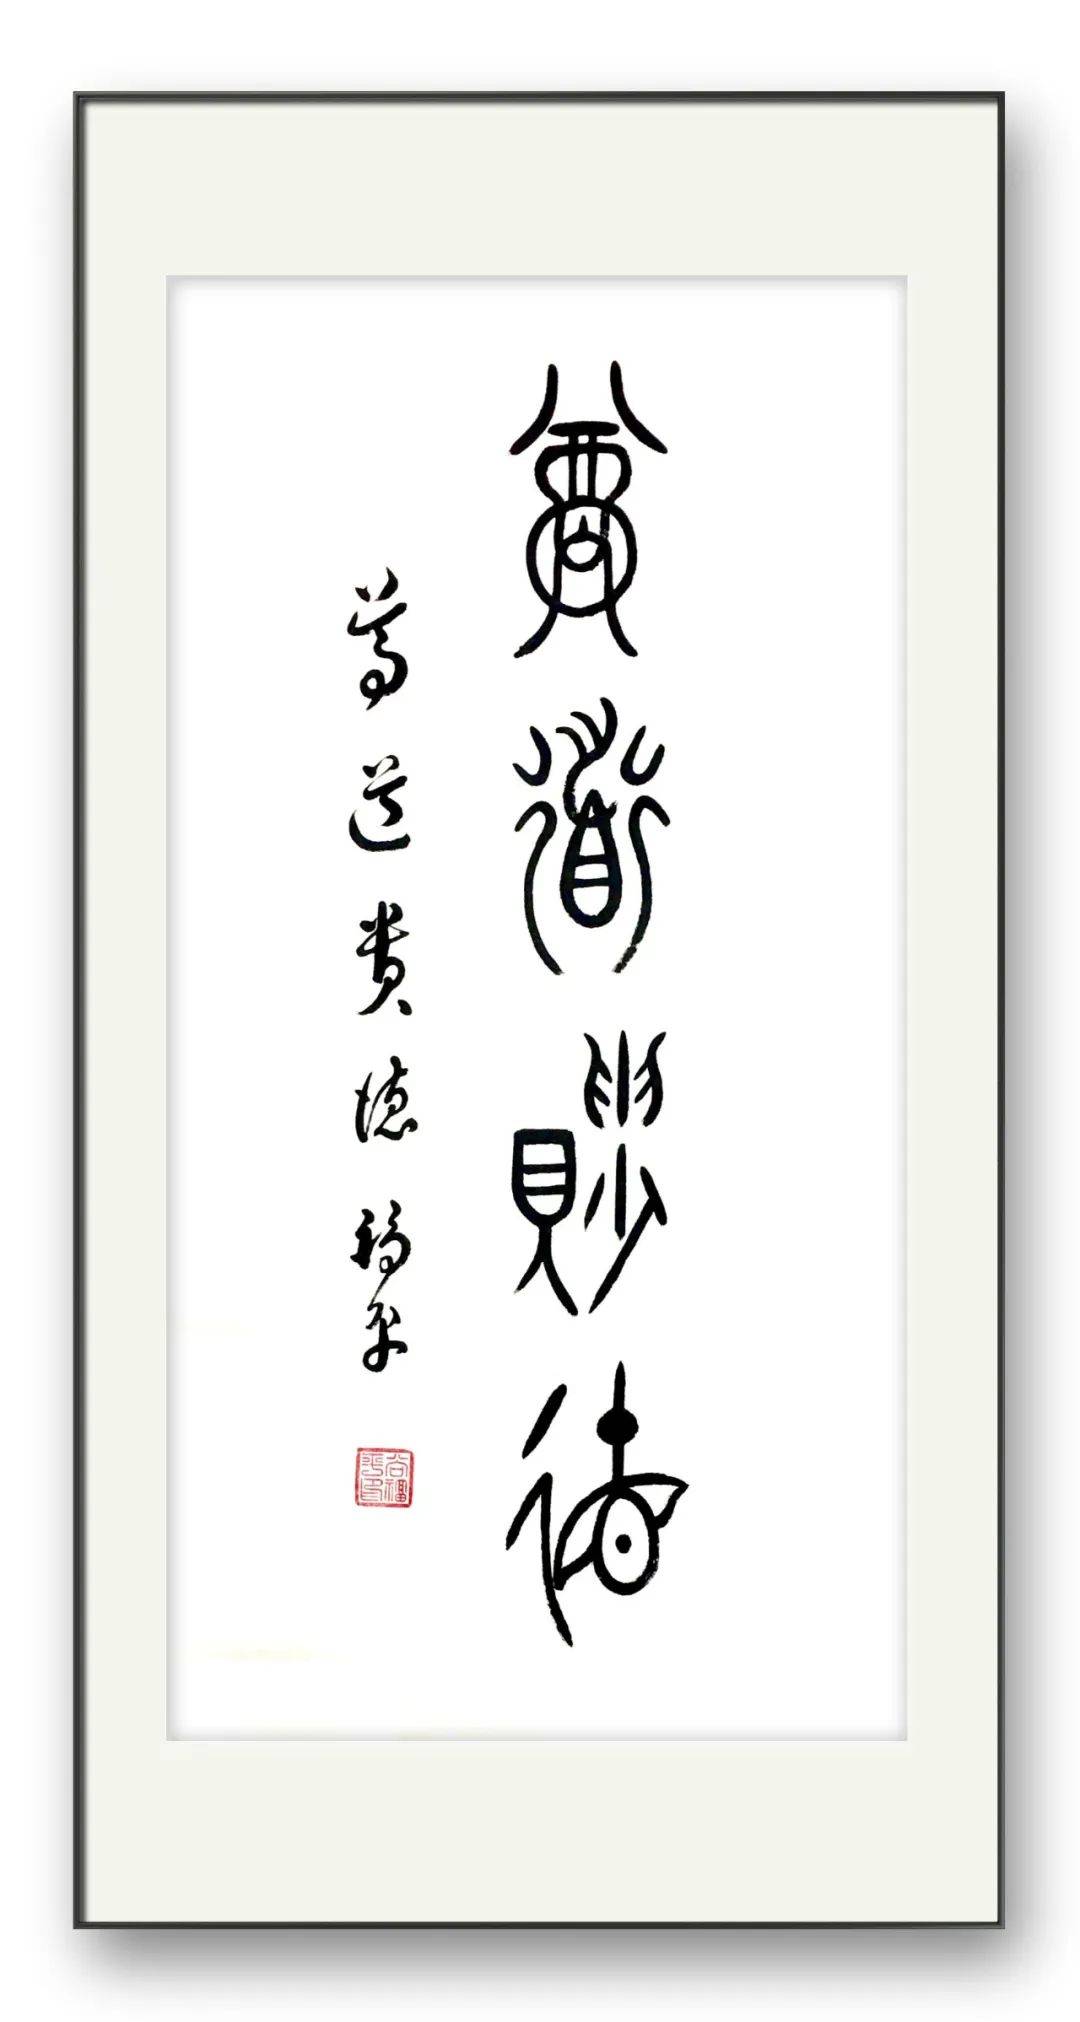 尊道貴德
尊道貴德 福平